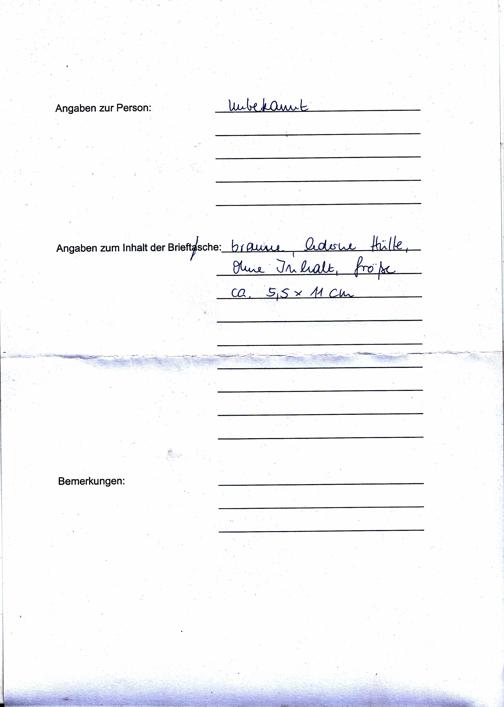 Angaben zur Person: Unbekannt
Angaben zum Inhalt der Brieftasche: braune, lederne Hülle,
ohne Inhalt, Größe
ca. 5,5 x 11 cm
Bemerkungen: